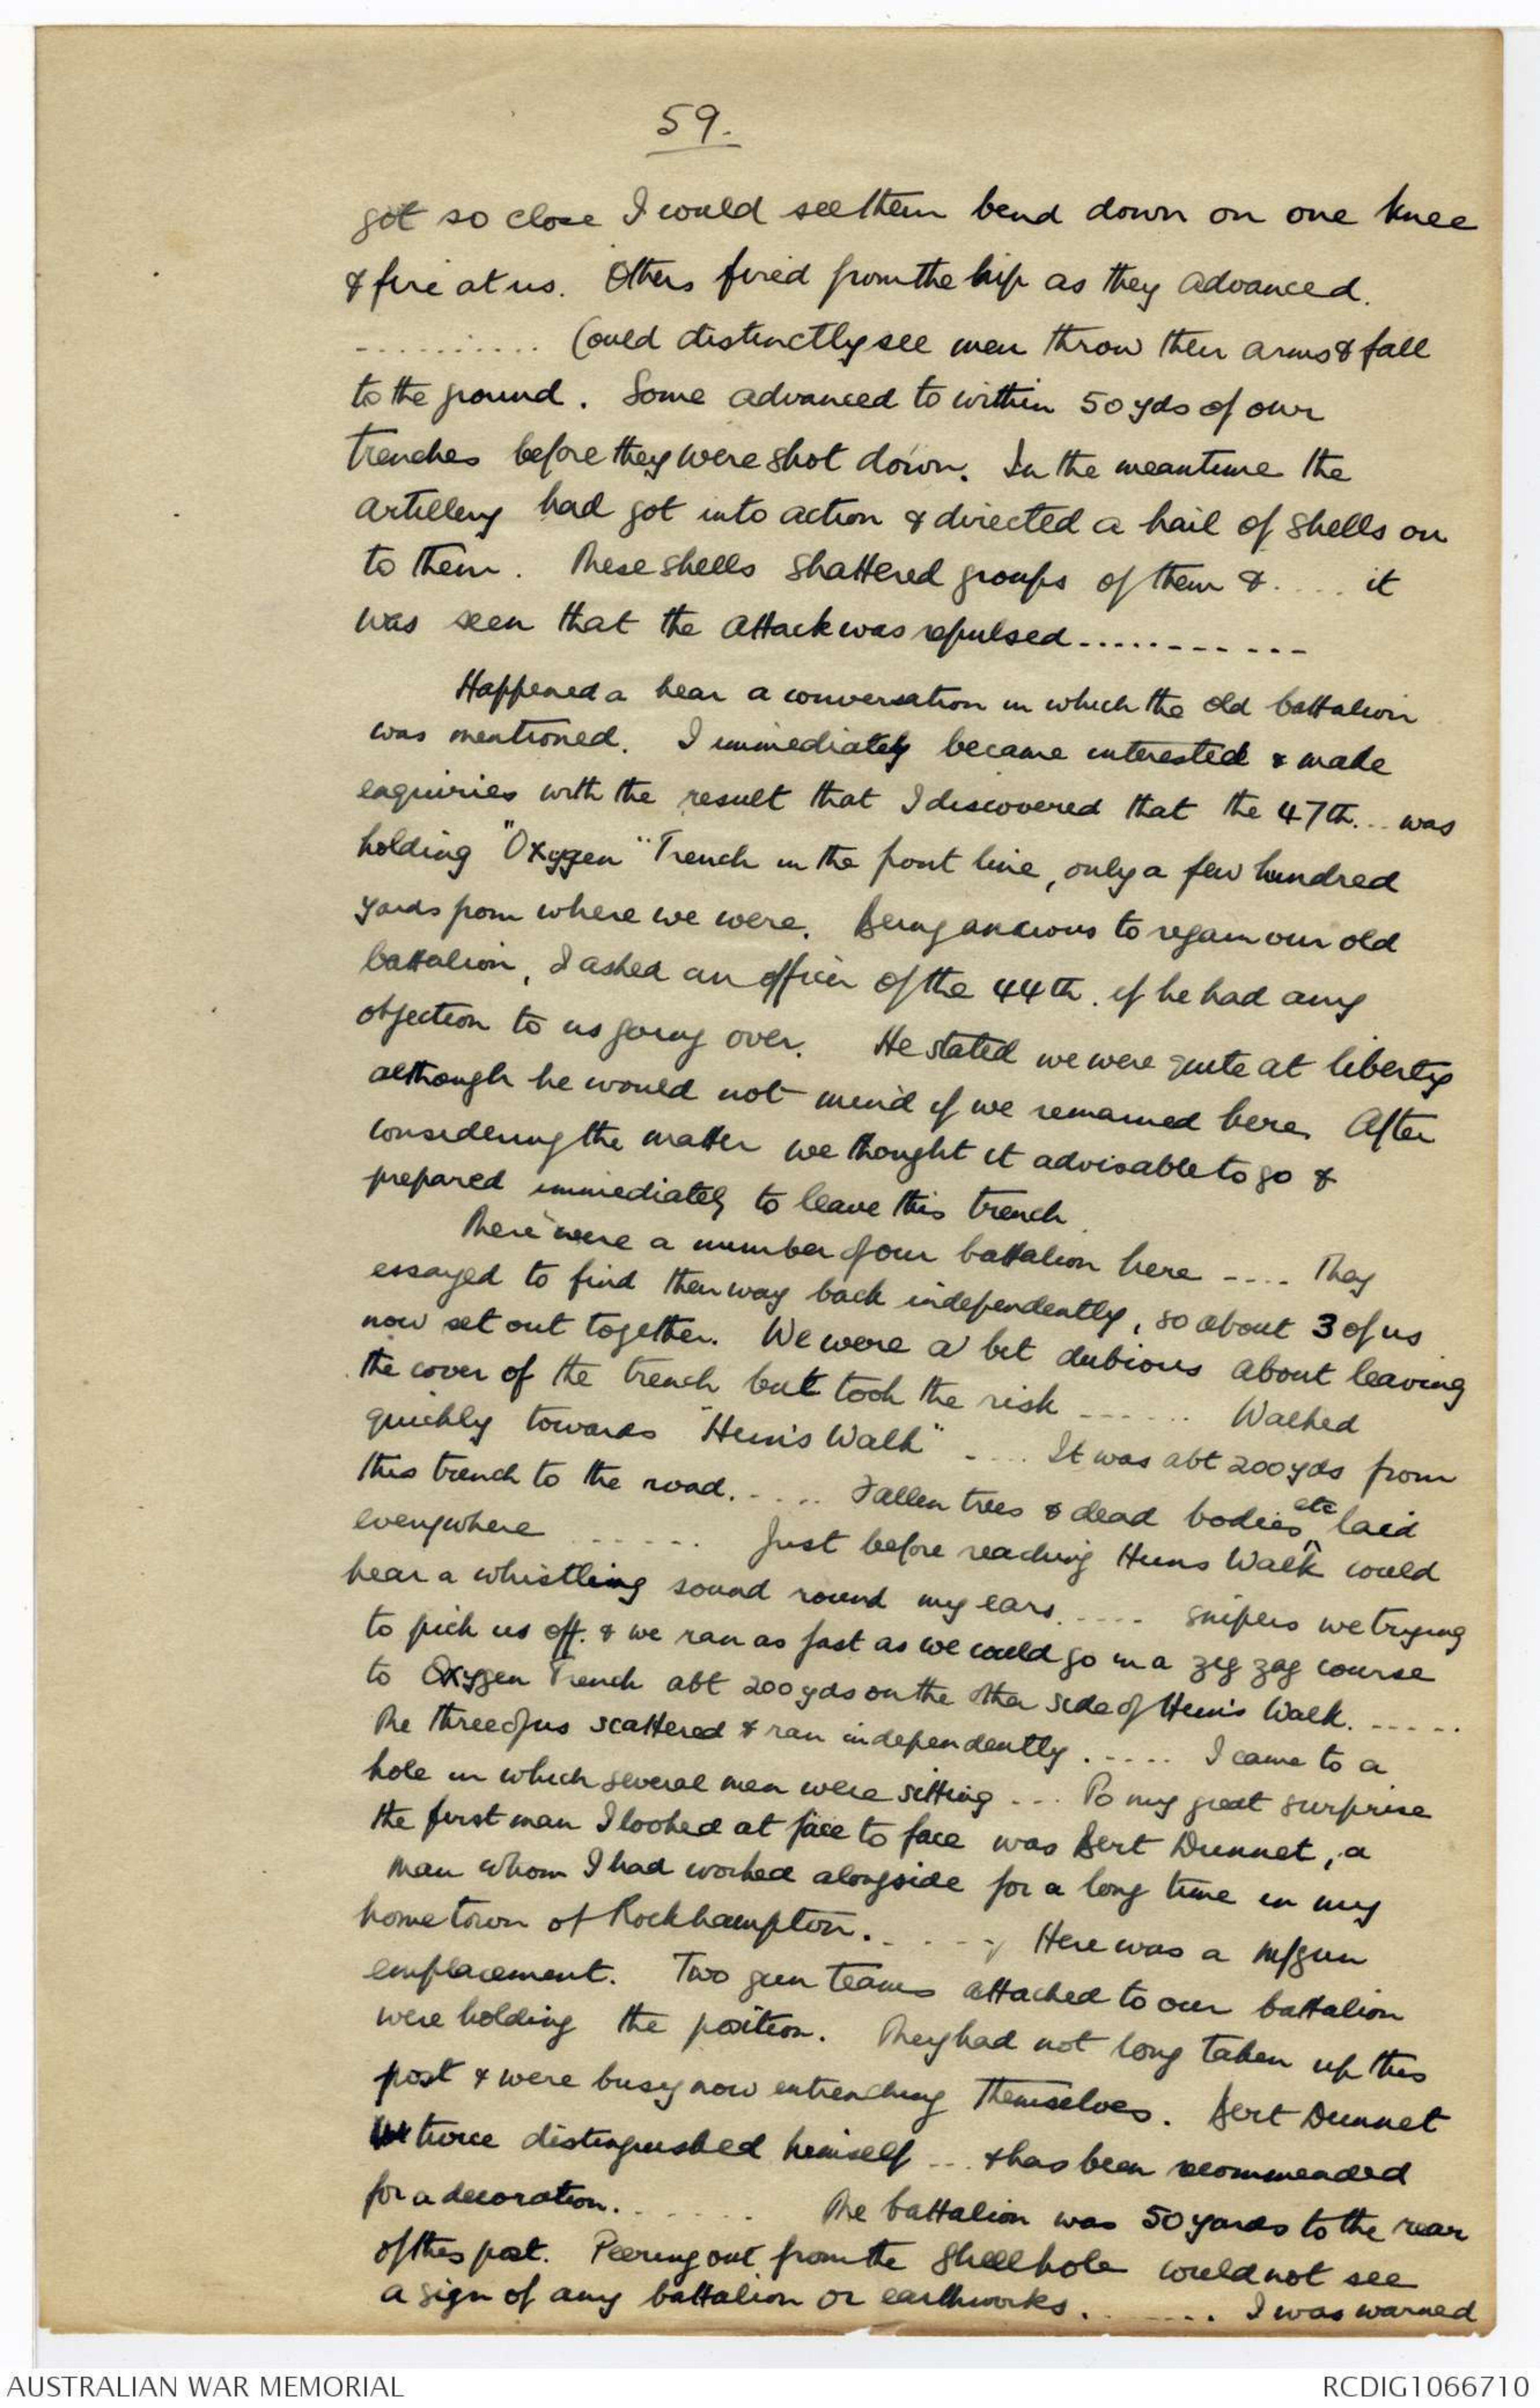 59.
got so close I could see them bend down on one knee
& fire at us. Others fired from the hip as they advanced.
.......... Could distinctly see men throw their arms & fall
to the ground. Some advanced to within 50 yds of our
trenches before they were shot down. In the meantime the
artillery had got into action & directed a hail of shells on
to them. These shells shattered groups of them &.... it
was seen that the attack was repulsed............
Happened a hear a conversation in which the old battalion
was mentioned. I immediately became interested & made
enquiries with the result that I discovered that the 47th... was
holding "Oxygen" Trench in the front line, only a few hundred
yards from where we were. Being anxious to regain our old
battalion, I asked an officer of the 44th. if he had any
objection to us going over. He stated we were quite at liberty
although he would not mind if we remained here. After
considering the matter we thought it advisable to go &
prepared immediately to leave this trench.
There were a number of our battalion here .... They
essayed to find their way back independently, so about 3 of us
now set out together. We were a bit dubious about leaving
the cover of the trench but took the risk ...... Walked
quickly towards "Hun's Walk" .... It was abt 200 yds from
this trench to the road..... Fallen trees & dead bodies etc laid
everywhere ...... Just before reaching Huns Walk could
hear a whistling sound round my ears..... snipers we trying
to pick us off. & we ran as fast as we could go in a zig zag course
to Oxygen Trench abt 200 yds on the other side of Hun's Walk......
The three of us scattered & ran independently..... I came to a
hole in which several men were sitting ... To my great surprise
the first man I looked at face to face was Bert Dunnet, a
man whom I had worked alongside for a long time in my
home town of Rockhampton...... Here was a m/gun
emplacement. Two gun teams attached to our battalion
were holding the position. They had not long taken up this
post & were busy now entrenching themselves. Bert Dunnet
twice distinguished himself ... & has been recommended
for a decoration....... The battalion was 50 yards to the rear
of this post. Peering out from the shell hole could not see
a sign of any battalion or earthworks....... I was warned
AUSTRALIAN WAR MEMORIAL
RCDIG1066710